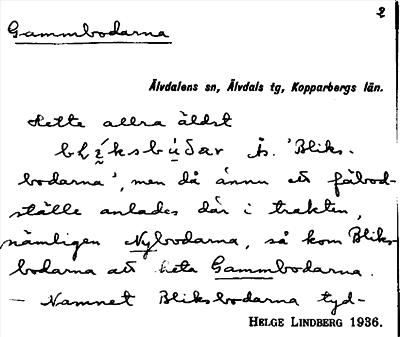 2
Gammbodarna
Älvdalens sn, Älvdals tg, Kopparbergs län.
Hette allra äldst
Þs. 'Bliks-
bodarna', men då ännu ett fäbod-
ställe anlades där i trakten,
nämligen Nybodarna, så kom Bliks-
bodarna att heta Gammbodarna.
— Namnet Bliksbodarna tyd-
HELGE LINDBERG 1936.